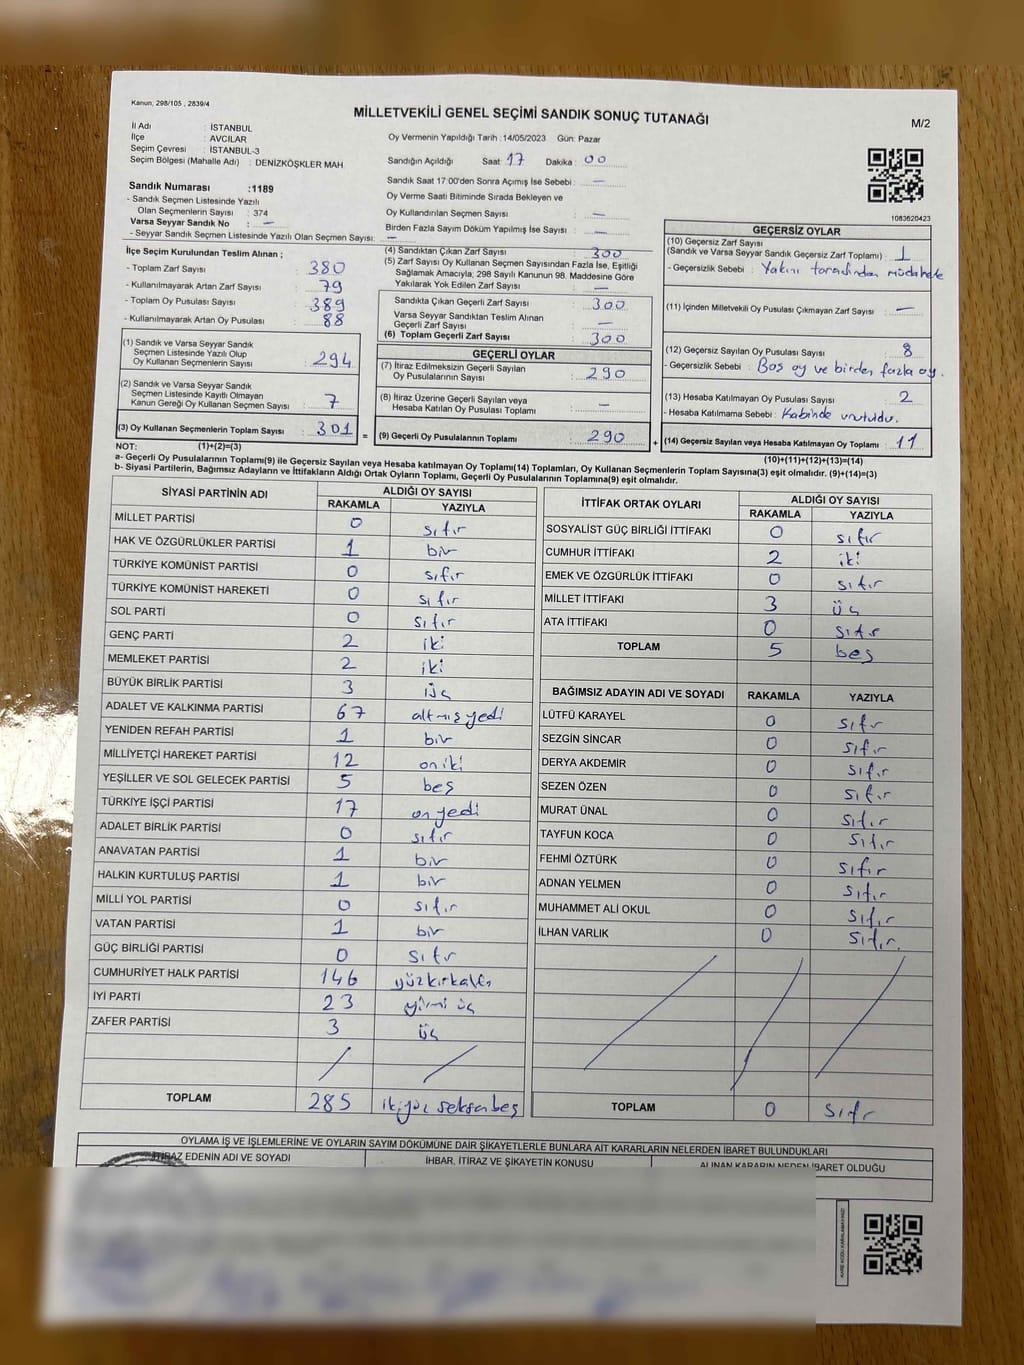 Kanun, 298/105 , 2839/4
MİLLETVEKİLİ GENEL SEÇİMİ SANDIK SONUÇ TUTANAĞI
M/2
İl Adı : İSTANBUL
İlçe : AVCILAR
Seçim Çevresi : İSTANBUL-3
Seçim Bölgesi (Mahalle Adı) : DENİZKÖŞKLER MAH.
Sandık Numarası :1189
- Sandık Seçmen Listesinde Yazılı
Olan Seçmenlerin Sayısı : 374
Varsa Seyyar Sandık No : —
- Seyyar Sandık Seçmen Listesinde Yazılı Olan Seçmen Sayısı: —
Oy Vermenin Yapıldığı Tarih :14/05/2023 Gün: Pazar
Sandığın Açıldığı Saat 17 Dakika : 00
Sandık Saat 17:00'den Sonra Açımış İse Sebebi : —
Oy Verme Saati Bitiminde Sırada Bekleyen ve
Oy Kullandırılan Seçmen Sayısı : —
Birden Fazla Sayım Döküm Yapılmış İse Sayısı : —
1083620423
İlçe Seçim Kurulundan Teslim Alınan ;
- Toplam Zarf Sayısı : 380
- Kullanılmayarak Artan Zarf Sayısı : 79
- Toplam Oy Pusulası Sayısı : 389
- Kullanılmayarak Artan Oy Pusulası : 88
(1) Sandık ve Varsa Seyyar Sandık
Seçmen Listesinde Yazılı Olup
Oy Kullanan Seçmenlerin Sayısı : 294
(2) Sandık ve Varsa Seyyar Sandık
Seçmen Listesinde Kayıtlı Olmayan
Kanun Gereği Oy Kullanan Seçmen Sayısı : 7
(3) Oy Kullanan Seçmenlerin Toplam Sayısı : 301
(4) Sandıktan Çıkan Zarf Sayısı : 300
(5) Zarf Sayısı Oy Kullanan Seçmen Sayısından Fazla İse, Eşitliği
Sağlamak Amacıyla; 298 Sayılı Kanunun 98. Maddesine Göre
Yakılarak Yok Edilen Zarf Sayısı : —
Sandıkta Çıkan Geçerli Zarf Sayısı : 300
Varsa Seyyar Sandıktan Teslim Alınan
Geçerli Zarf Sayısı : —
(6) Toplam Geçerli Zarf Sayısı : 300
GEÇERLİ OYLAR
(7) İtiraz Edilmeksizin Geçerli Sayılan
Oy Pusulalarının Sayısı : 290
(8) İtiraz Üzerine Geçerli Sayılan veya
Hesaba Katılan Oy Pusulası Toplamı : —
= (9) Geçerli Oy Pusulalarının Toplamı : 290 +
GEÇERSİZ OYLAR
(10) Geçersiz Zarf Sayısı
(Sandık ve Varsa Seyyar Sandık Geçersiz Zarf Toplamı) : 1
- Geçersizlik Sebebi : Yakını tarafından müdahele
(11) İçinden Milletvekili Oy Pusulası Çıkmayan Zarf Sayısı : —
(12) Geçersiz Sayılan Oy Pusulası Sayısı : 8
- Geçersizlik Sebebi : Boş oy ve birden fazla oy.
(13) Hesaba Katılmayan Oy Pusulası Sayısı : 2
- Hesaba Katılmama Sebebi : Kabinde unutuldu.
(14) Geçersiz Sayılan veya Hesaba Katılmayan Oy Toplamı : 11
NOT: (1)+(2)=(3) (10)+(11)+(12)+(13)=(14)
a- Geçerli Oy Pusulalarının Toplamı(9) ile Geçersiz Sayılan veya Hesaba katılmayan Oy Toplamı(14) Toplamları, Oy Kullanan Seçmenlerin Toplam Sayısına(3) eşit olmalıdır. (9)+(14)=(3)
b- Siyasi Partilerin, Bağımsız Adayların ve İttifakların Aldığı Ortak Oyların Toplamı, Geçerli Oy Pusulalarının Toplamına(9) eşit olmalıdır.
SİYASİ PARTİNİN ADI ALDIĞI OY SAYISI
RAKAMLA YAZIYLA
MİLLET PARTİSİ 0 sıfır
HAK VE ÖZGÜRLÜKLER PARTİSİ 1 bir
TÜRKİYE KOMÜNİST PARTİSİ 0 sıfır
TÜRKİYE KOMÜNİST HAREKETİ 0 sıfır
SOL PARTİ 0 sıfır
GENÇ PARTİ 2 iki
MEMLEKET PARTİSİ 2 iki
BÜYÜK BİRLİK PARTİSİ 3 üç
ADALET VE KALKINMA PARTİSİ 67 altmışyedi
YENİDEN REFAH PARTİSİ 1 bir
MİLLİYETÇİ HAREKET PARTİSİ 12 oniki
YEŞİLLER VE SOL GELECEK PARTİSİ 5 beş
TÜRKİYE İŞÇİ PARTİSİ 17 onyedi
ADALET BİRLİK PARTİSİ 0 sıfır
ANAVATAN PARTİSİ 1 bir
HALKIN KURTULUŞ PARTİSİ 1 bir
MİLLİ YOL PARTİSİ 0 sıfır
VATAN PARTİSİ 1 bir
GÜÇ BİRLİĞİ PARTİSİ 0 sıfır
CUMHURİYET HALK PARTİSİ 146 yüzkırkaltı
İYİ PARTİ 23 yirmi üç
ZAFER PARTİSİ 3 üç
TOPLAM 285 ikiyüz seksenbeş
İTTİFAK ORTAK OYLARI ALDIĞI OY SAYISI
RAKAMLA YAZIYLA
SOSYALİST GÜÇ BİRLİĞİ İTTİFAKI 0 sıfır
CUMHUR İTTİFAKI 2 iki
EMEK VE ÖZGÜRLÜK İTTİFAKI 0 sıfır
MİLLET İTTİFAKI 3 üç
ATA İTTİFAKI 0 sıfır
TOPLAM 5 beş
BAĞIMSIZ ADAYIN ADI VE SOYADI RAKAMLA YAZIYLA
LÜTFÜ KARAYEL 0 sıfır
SEZGİN SİNCAR 0 sıfır
DERYA AKDEMİR 0 sıfır
SEZEN ÖZEN 0 sıfır
MURAT ÜNAL 0 sıfır
TAYFUN KOCA 0 sıfır
FEHMİ ÖZTÜRK 0 sıfır
ADNAN YELMEN 0 sıfır
MUHAMMET ALİ OKUL 0 sıfır
İLHAN VARLIK 0 sıfır.
TOPLAM 0 sıfır
OYLAMA İŞ VE İŞLEMLERİNE VE OYLARIN SAYIM DÖKÜMÜNE DAİR ŞİKAYETLERLE BUNLARA AİT KARARLARIN NELERDEN İBARET BULUNDUKLARI
İTİRAZ EDENİN ADI VE SOYADI İHBAR, İTİRAZ VE ŞİKAYETİN KONUSU ALINAN KARARIN NEDEN İBARET OLDUĞU
KARE KODU KARALAMAYINIZ!